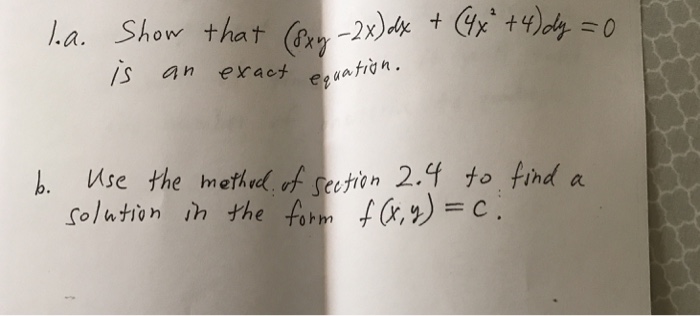 1.a. Show that (8xy-2x)dx + (4x²+4)dy = 0
is an exact equation.
b. Use the method of section 2.4 to find a
solution in the form f(x,y) = c.